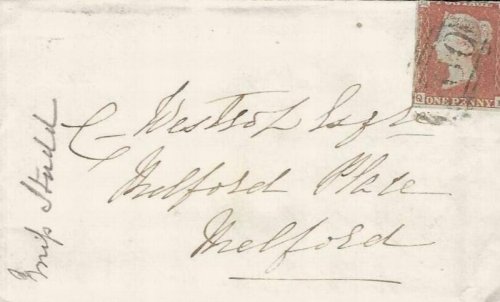 C Westrop Esqre
Melford Place
Melford
Miss Studd
ONE PENNY
Q